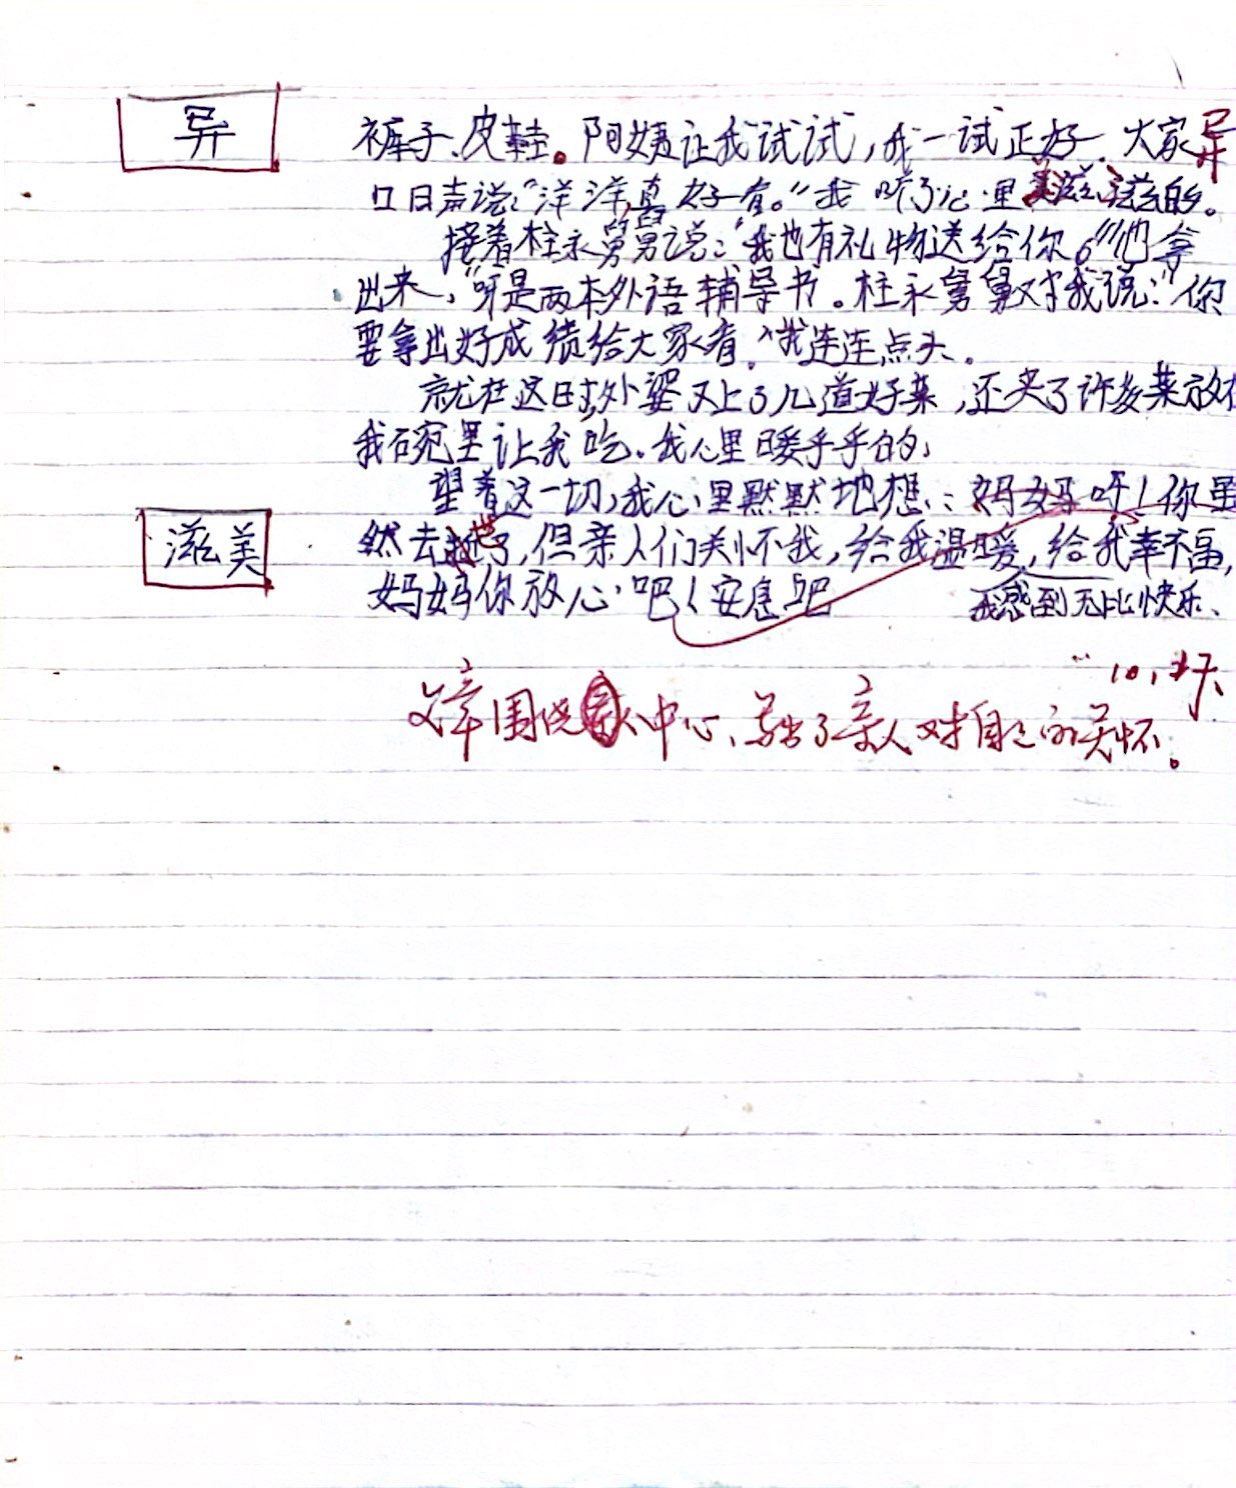 异
裤子、皮鞋。阿姨让我试试,我一试正好.大家异
口同声说:"洋洋,真好看。"我听了心里美滋滋的。
接着柱永舅舅说:"我也有礼物送给你。"他拿
出来,"呀是两本外语辅导书。柱永舅舅对我说:"你
要拿出好成绩给大家看."我连连点头。
就在这时,外婆又上了几道好菜,还夹了许多菜放在
我碗里让我吃.我心里暖乎乎的,
望着这一切,我心里默默地想:妈妈呀!你虽
滋美
然去世了,但亲人们关怀我,给我温暖,给我幸福,
妈妈你放心吧!安息吧
我感到无比快乐.
文章围绕中心,写出了亲人对自己的关怀。